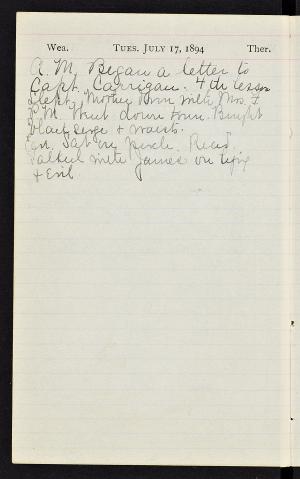 Wea. TUES. JULY 17, 1894 Ther.
A. M. Began a letter to
Capt. Carrigan. 4th lesson
Slept. Mother down with Mrs. F
P. M. Went down town. Bought
black serge + waists.
Ev. Sat on porch. Read.
Talked with James on
+ Evil.